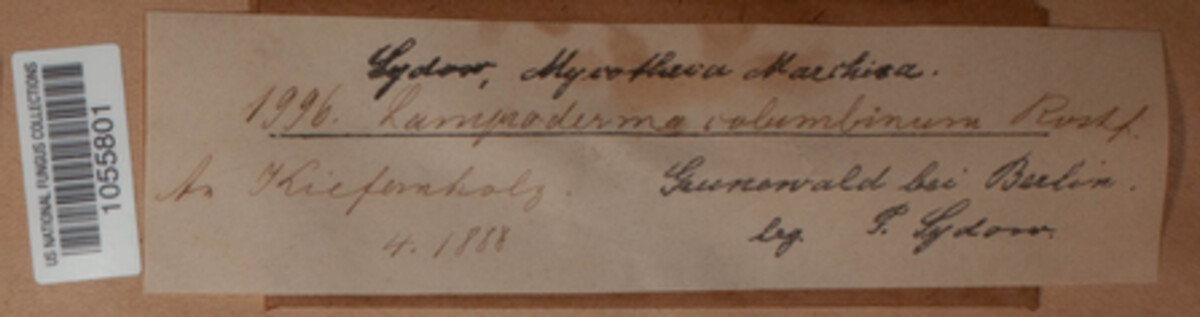 US NATIONAL FUNGUS COLLECTIONS
1055801
Sydow, Mycotheca Marchica.
1996. Lamproderma columbinum Rostf.
An Kiefernholz. Grunewald bei Berlin.
4. 1888 leg. P. Sydow.